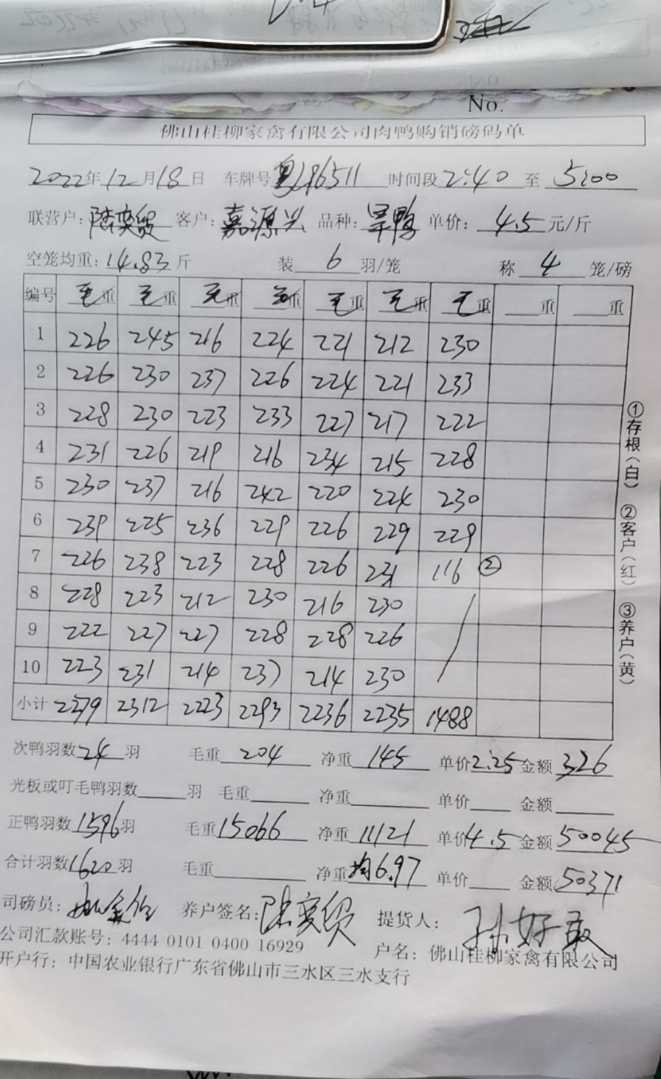 No.
佛山桂柳家禽有限公司肉鸭购销磅码单
2022年12月18日 车牌号 粤J86511 时间段 2:40 至 5:00
联营户: 陆奕贸 客户: 嘉源兴 品种: 旱鸭 单价: 4.5 元/斤
空笼均重: 14.83 斤 装 6 羽/笼 称 4 笼/磅
编号 毛重 毛重 毛重 毛重 毛重 毛重 毛重 重 重
1 226 245 216 224 221 212 230
2 226 230 237 226 224 221 233
3 228 230 223 233 227 217 222
4 231 226 219 216 234 215 228
5 230 237 216 242 220 224 230
6 239 225 236 229 226 229 229
7 226 238 223 228 226 231 116 ②
8 228 223 212 230 216 230
9 222 227 227 228 228 226
10 223 231 214 237 214 230
小计 2279 2312 2223 2293 2236 2235 1488
次鸭羽数 24 羽 毛重 204 净重 145 单价 2.25 金额 326
光板或叮毛鸭羽数 羽 毛重 净重 单价 金额
正鸭羽数 1596 羽 毛重 15066 净重 11121 单价 4.5 金额 50045
合计羽数 1620 羽 毛重 净重 均6.97 单价 金额 50371
司磅员: 养户签名: 陆奕贸 提货人: 孙好取
公司汇款账号: 4444 0101 0400 16929 户名: 佛山桂柳家禽有限公司
开户行: 中国农业银行广东省佛山市三水区三水支行
①存根(白) ②客户(红) ③养户(黄)